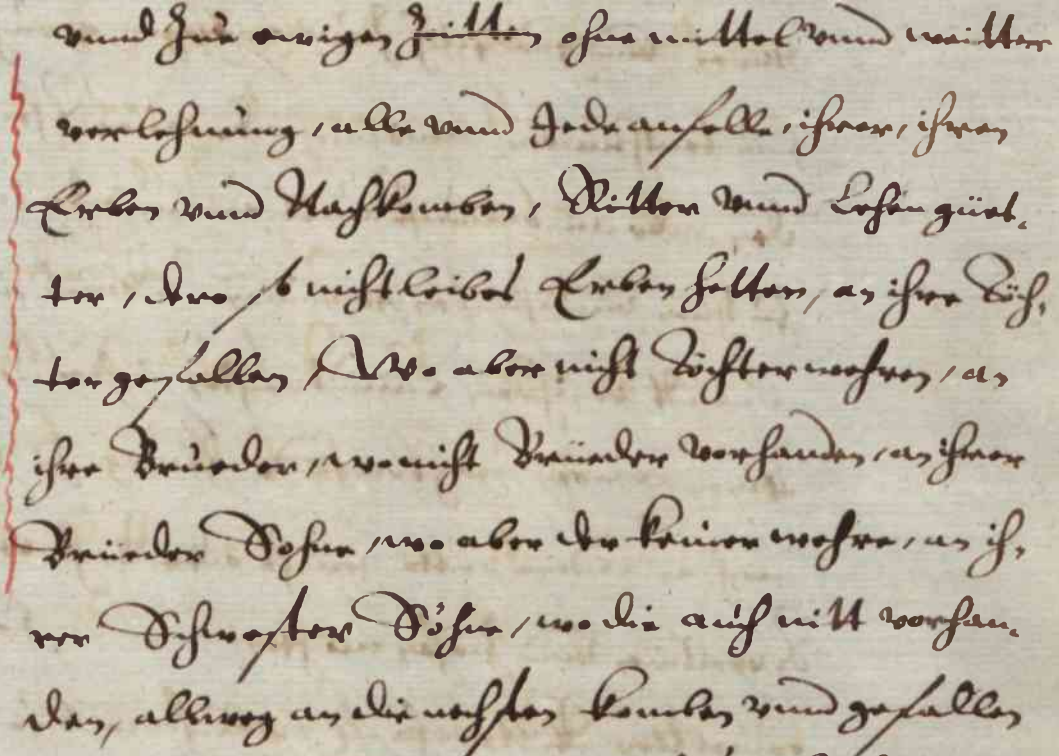 vnnd Zue ewigen Zeitten ohne mittel vnnd weitter
verlehnung, alle vnnd Jede anfelle, ihrer, ihren
Erben vnnd Nachkomben, Ritter vnnd Lehen güet-
ter, dero, so nicht leibes Erben hetten, an ihre Töch-
ter gefallen, Wo aber nicht Töchter wehren, an
ihre Brueder, wo nicht Brüeder vorhanden, an ihrer
Brüeder Sohne, wo aber der keiner wehre, an ih-
rer Schwester Söhne, wo die auch nitt vorhan-
den, allweg an die nechsten komben vnnd gefallen